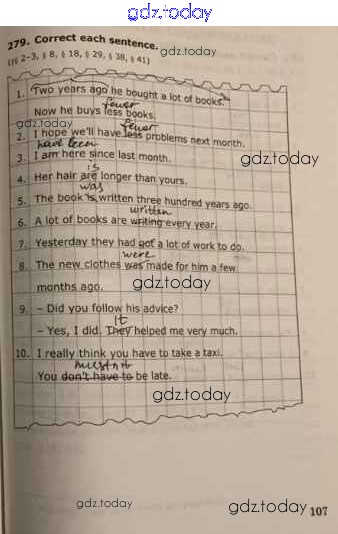 gdz.today
279. Correct each sentence.
gdz.today
(§§ 2–3, § 8, § 18, § 29, § 38, § 41)
1. Two years ago he bought a lot of books.
fewer
Now he buys less books.
gdz.today
fewer
2. I hope we'll have less problems next month.
have been
3. I am here since last month.
gdz.today
is
4. Her hair are longer than yours.
was
5. The book is written three hundred years ago.
written
6. A lot of books are writing every year.
7. Yesterday they had got a lot of work to do.
were
8. The new clothes was made for him a few
months ago.
gdz.today
9. – Did you follow his advice?
It
– Yes, I did. They helped me very much.
10. I really think you have to take a taxi.
mustn't
You don't have to be late.
gdz.today
gdz.today
gdz.today
107